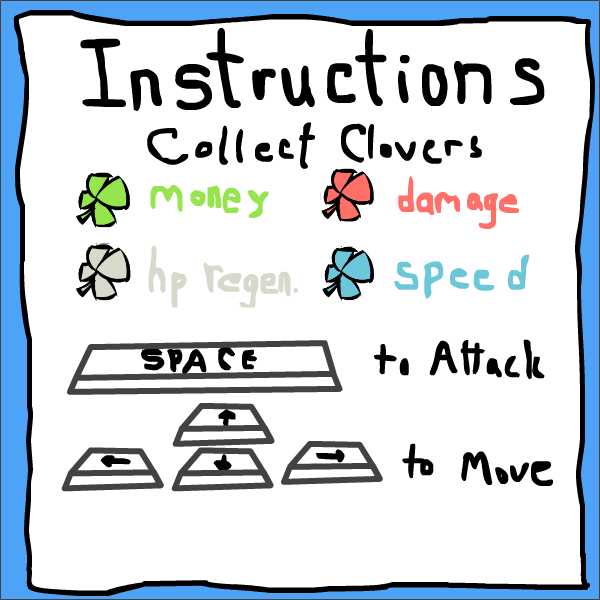 Instructions
Collect Clovers
money damage
hp regen. speed
SPACE to Attack
↑
← ↓ → to Move